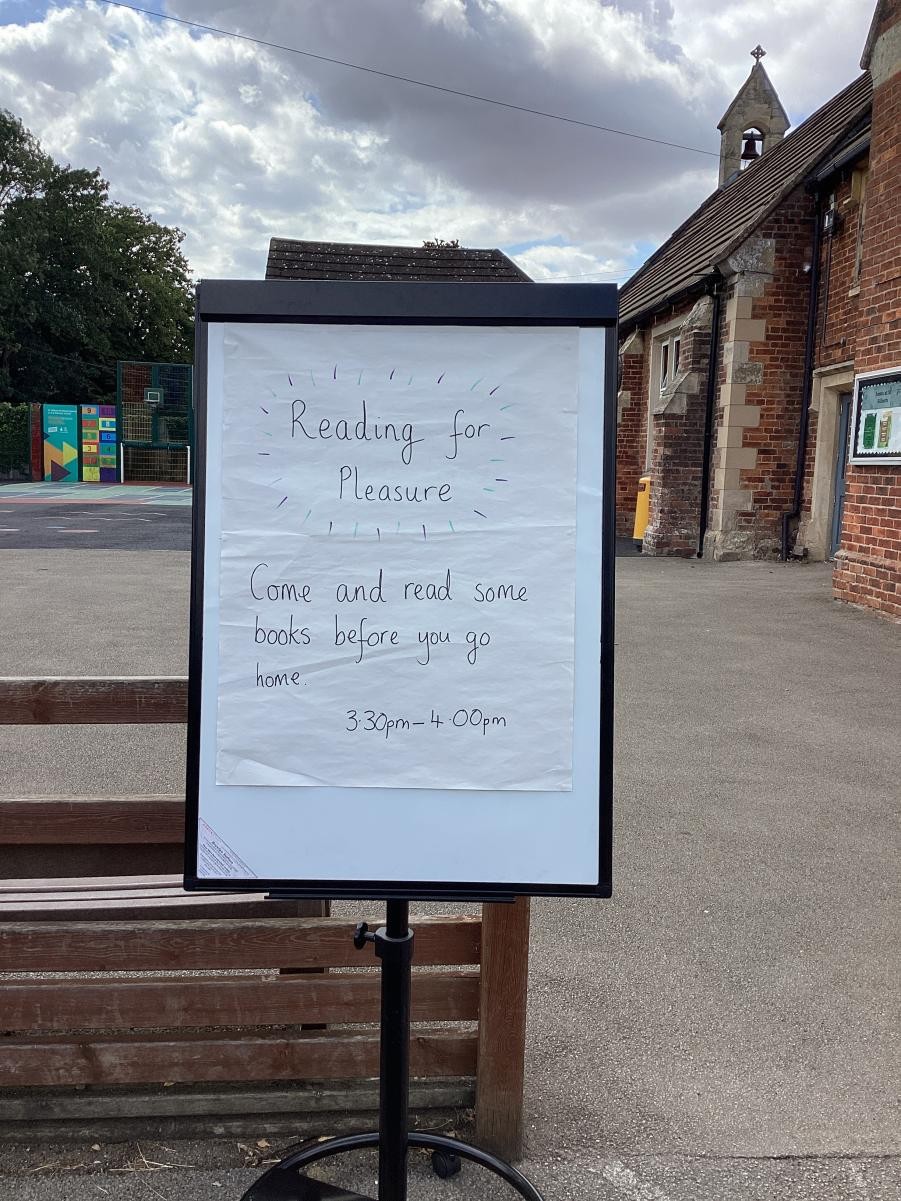 Reading for
Pleasure
Come and read some
books before you go
home.
3.30pm – 4.00pm